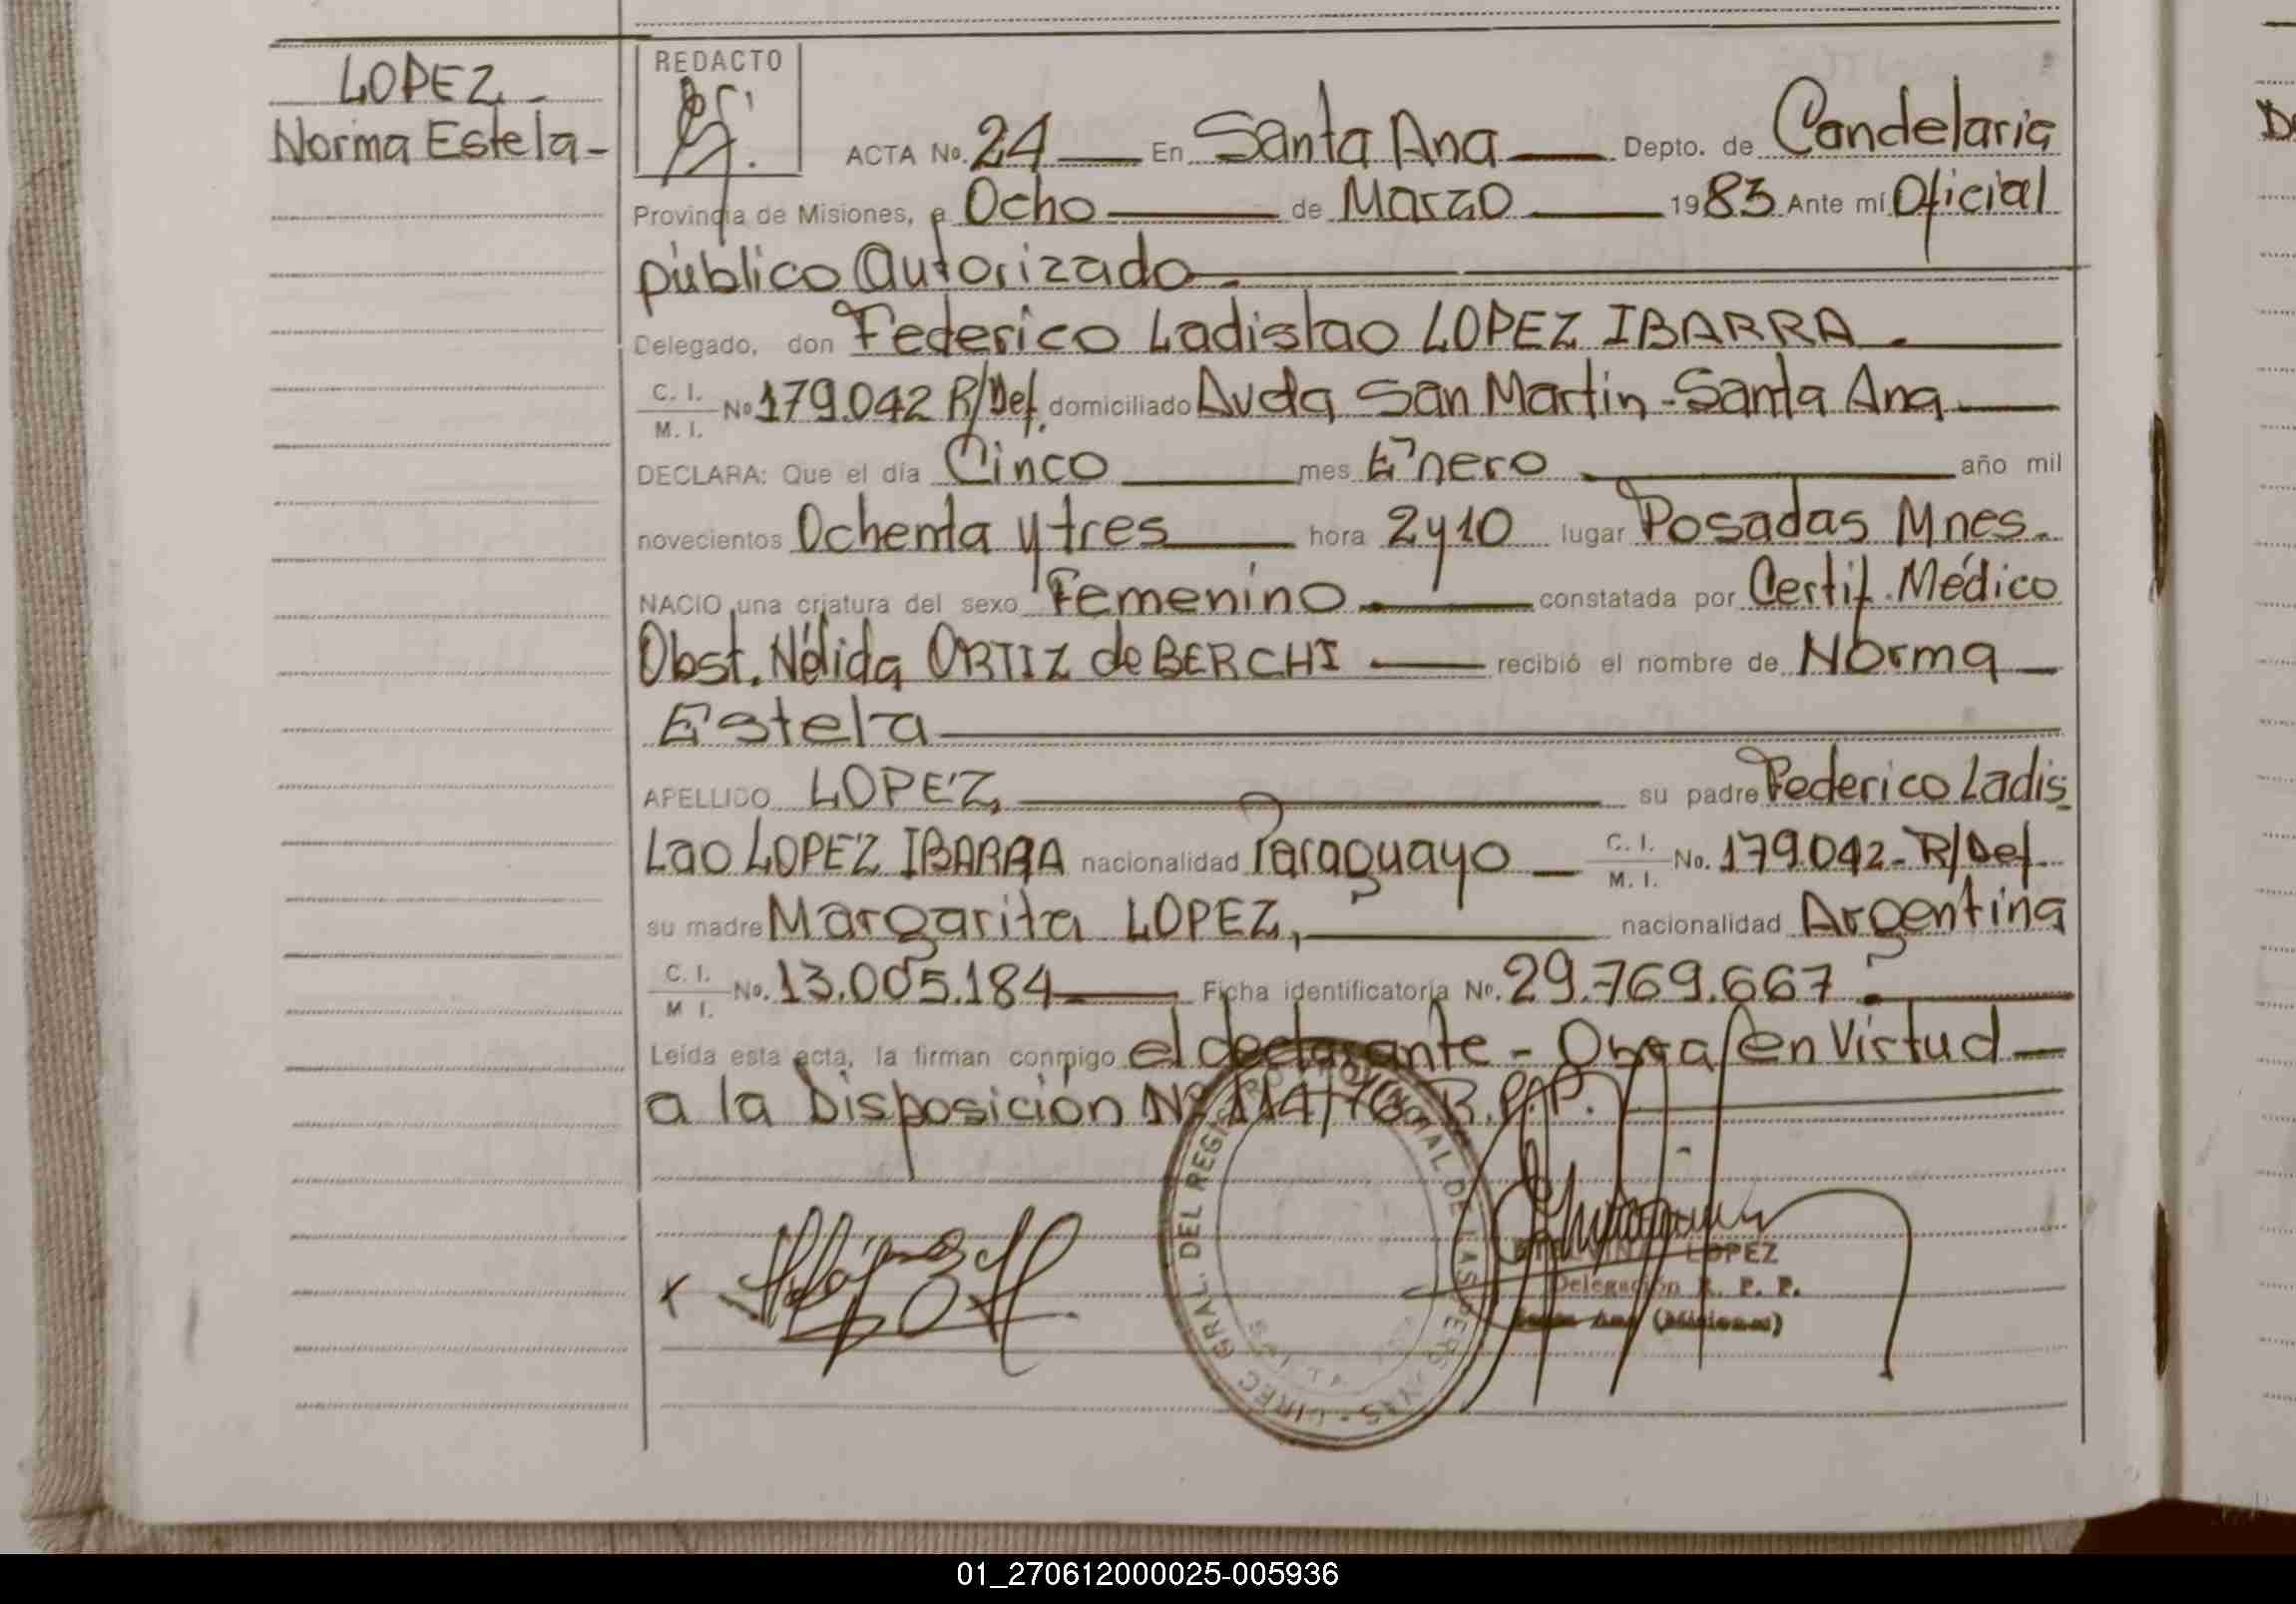 LOPEZ -
Norma Estela -
REDACTO
ACTA No. 24 En Santa Ana Depto. de Candelaria
Provincia de Misiones, a Ocho de Marzo 1983 Ante mí Oficial
público Autorizado.
Delegado, don Federico Ladislao LOPEZ IBARRA.
C. I. / M. I. No 179.042 R/Def. domiciliado Avda San Martin - Santa Ana
DECLARA: Que el día Cinco mes Enero año mil
novecientos Ochenta y tres hora 2 y 10 lugar Posadas Mnes.
NACIO una criatura del sexo Femenino constatada por Certif. Médico
Obst. Nélida ORTIZ de BERCHI recibió el nombre de Norma
Estela
APELLIDO LOPEZ, su padre Federico Ladis
Lao LOPEZ IBARRA nacionalidad Paraguayo C. I. / M. I. No. 179.042 - R/Def.
su madre Margarita LOPEZ, nacionalidad Argentina
C. I. / M I. No. 13.005.184 Ficha identificatoria No. 29.769.667.
Leída esta acta, la firman conmigo el declarante - en Virtud
a la Disposición Nº 114/76 R.P.P.
DIREC GRAL. DEL REGISTRO PROVINCIAL DE LAS PERS
LOPEZ
Delegación R. P. P.
Santa Ana (Misiones)
01_270612000025-005936